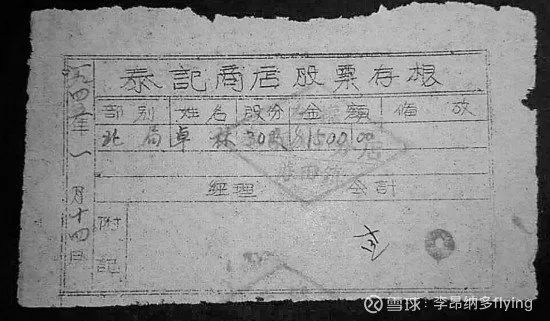 泰記商店股票存根
部别 姓名 股份 金額 備攷
北局 卓林 30股 $1500.00
商店
經理 會計
附記
年一月十四日
雪球：李昂纳多flying